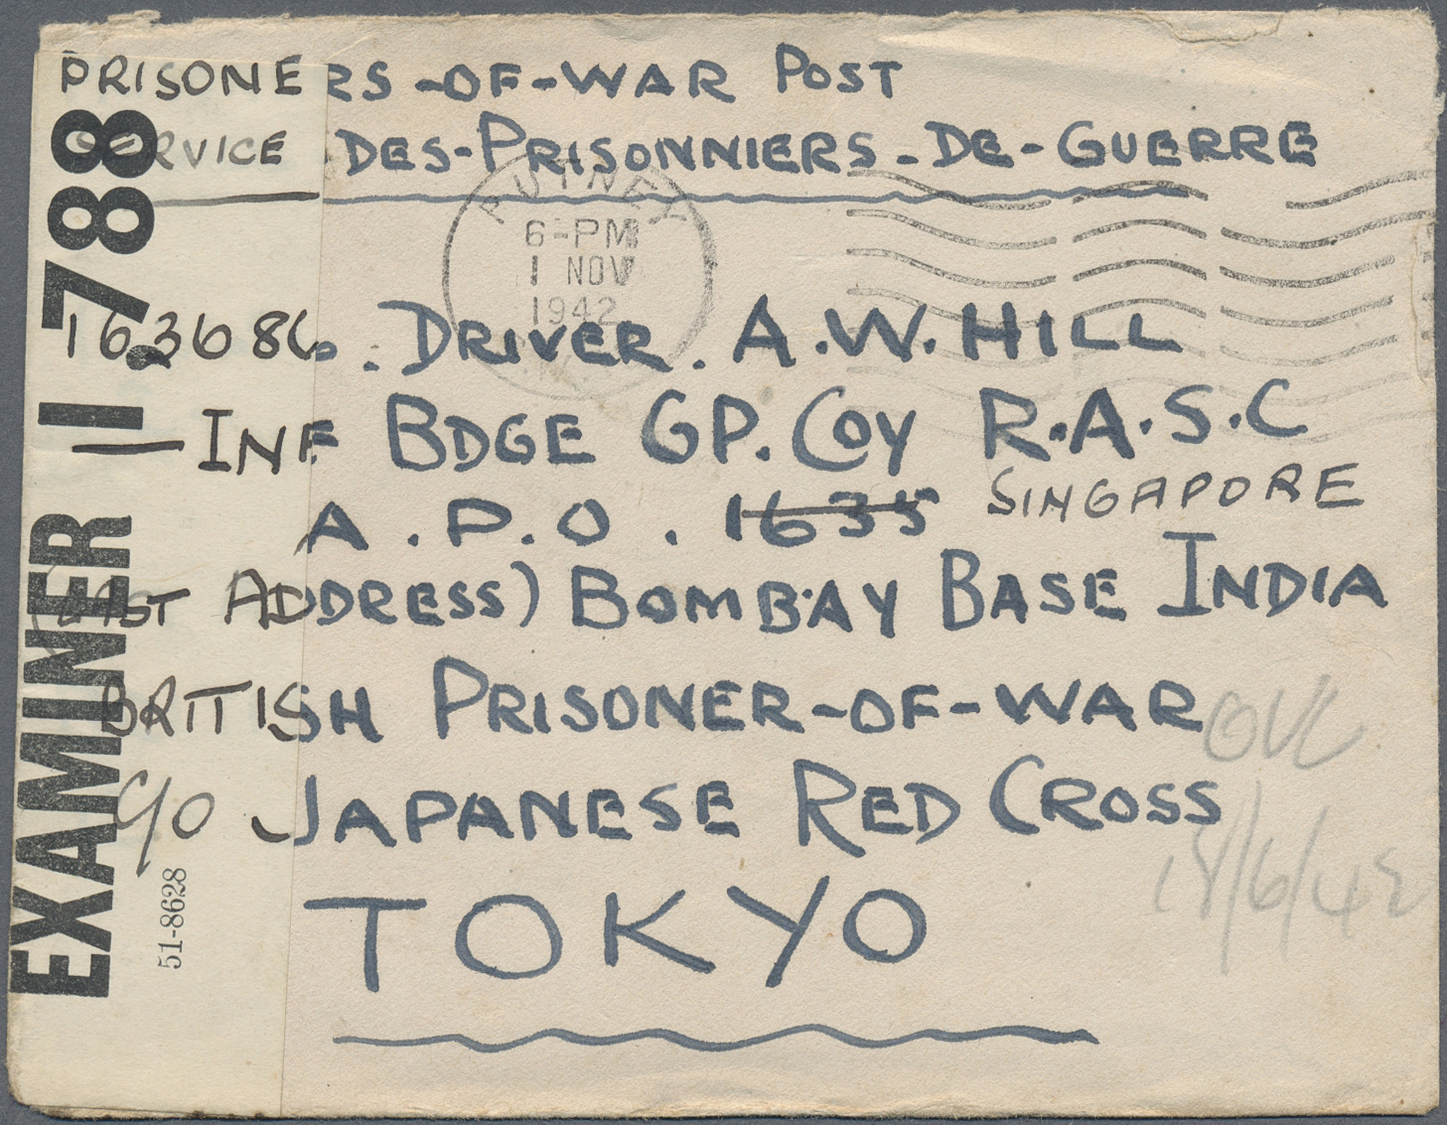 PRISONERS-OF-WAR POST
SERVICE DES-PRISONNIERS-DE-GUERRE
PUTNEY
6-PM
1 NOV
1942
163686. DRIVER. A.W. HILL
INF BDGE GP. COY R.A.S.C
A.P.O. 1635 SINGAPORE
(LAST ADDRESS) BOMBAY BASE INDIA
BRITISH PRISONER-OF-WAR
C/O JAPANESE RED CROSS
TOKYO
EXAMINER 11.788
51-8628
18/6/42